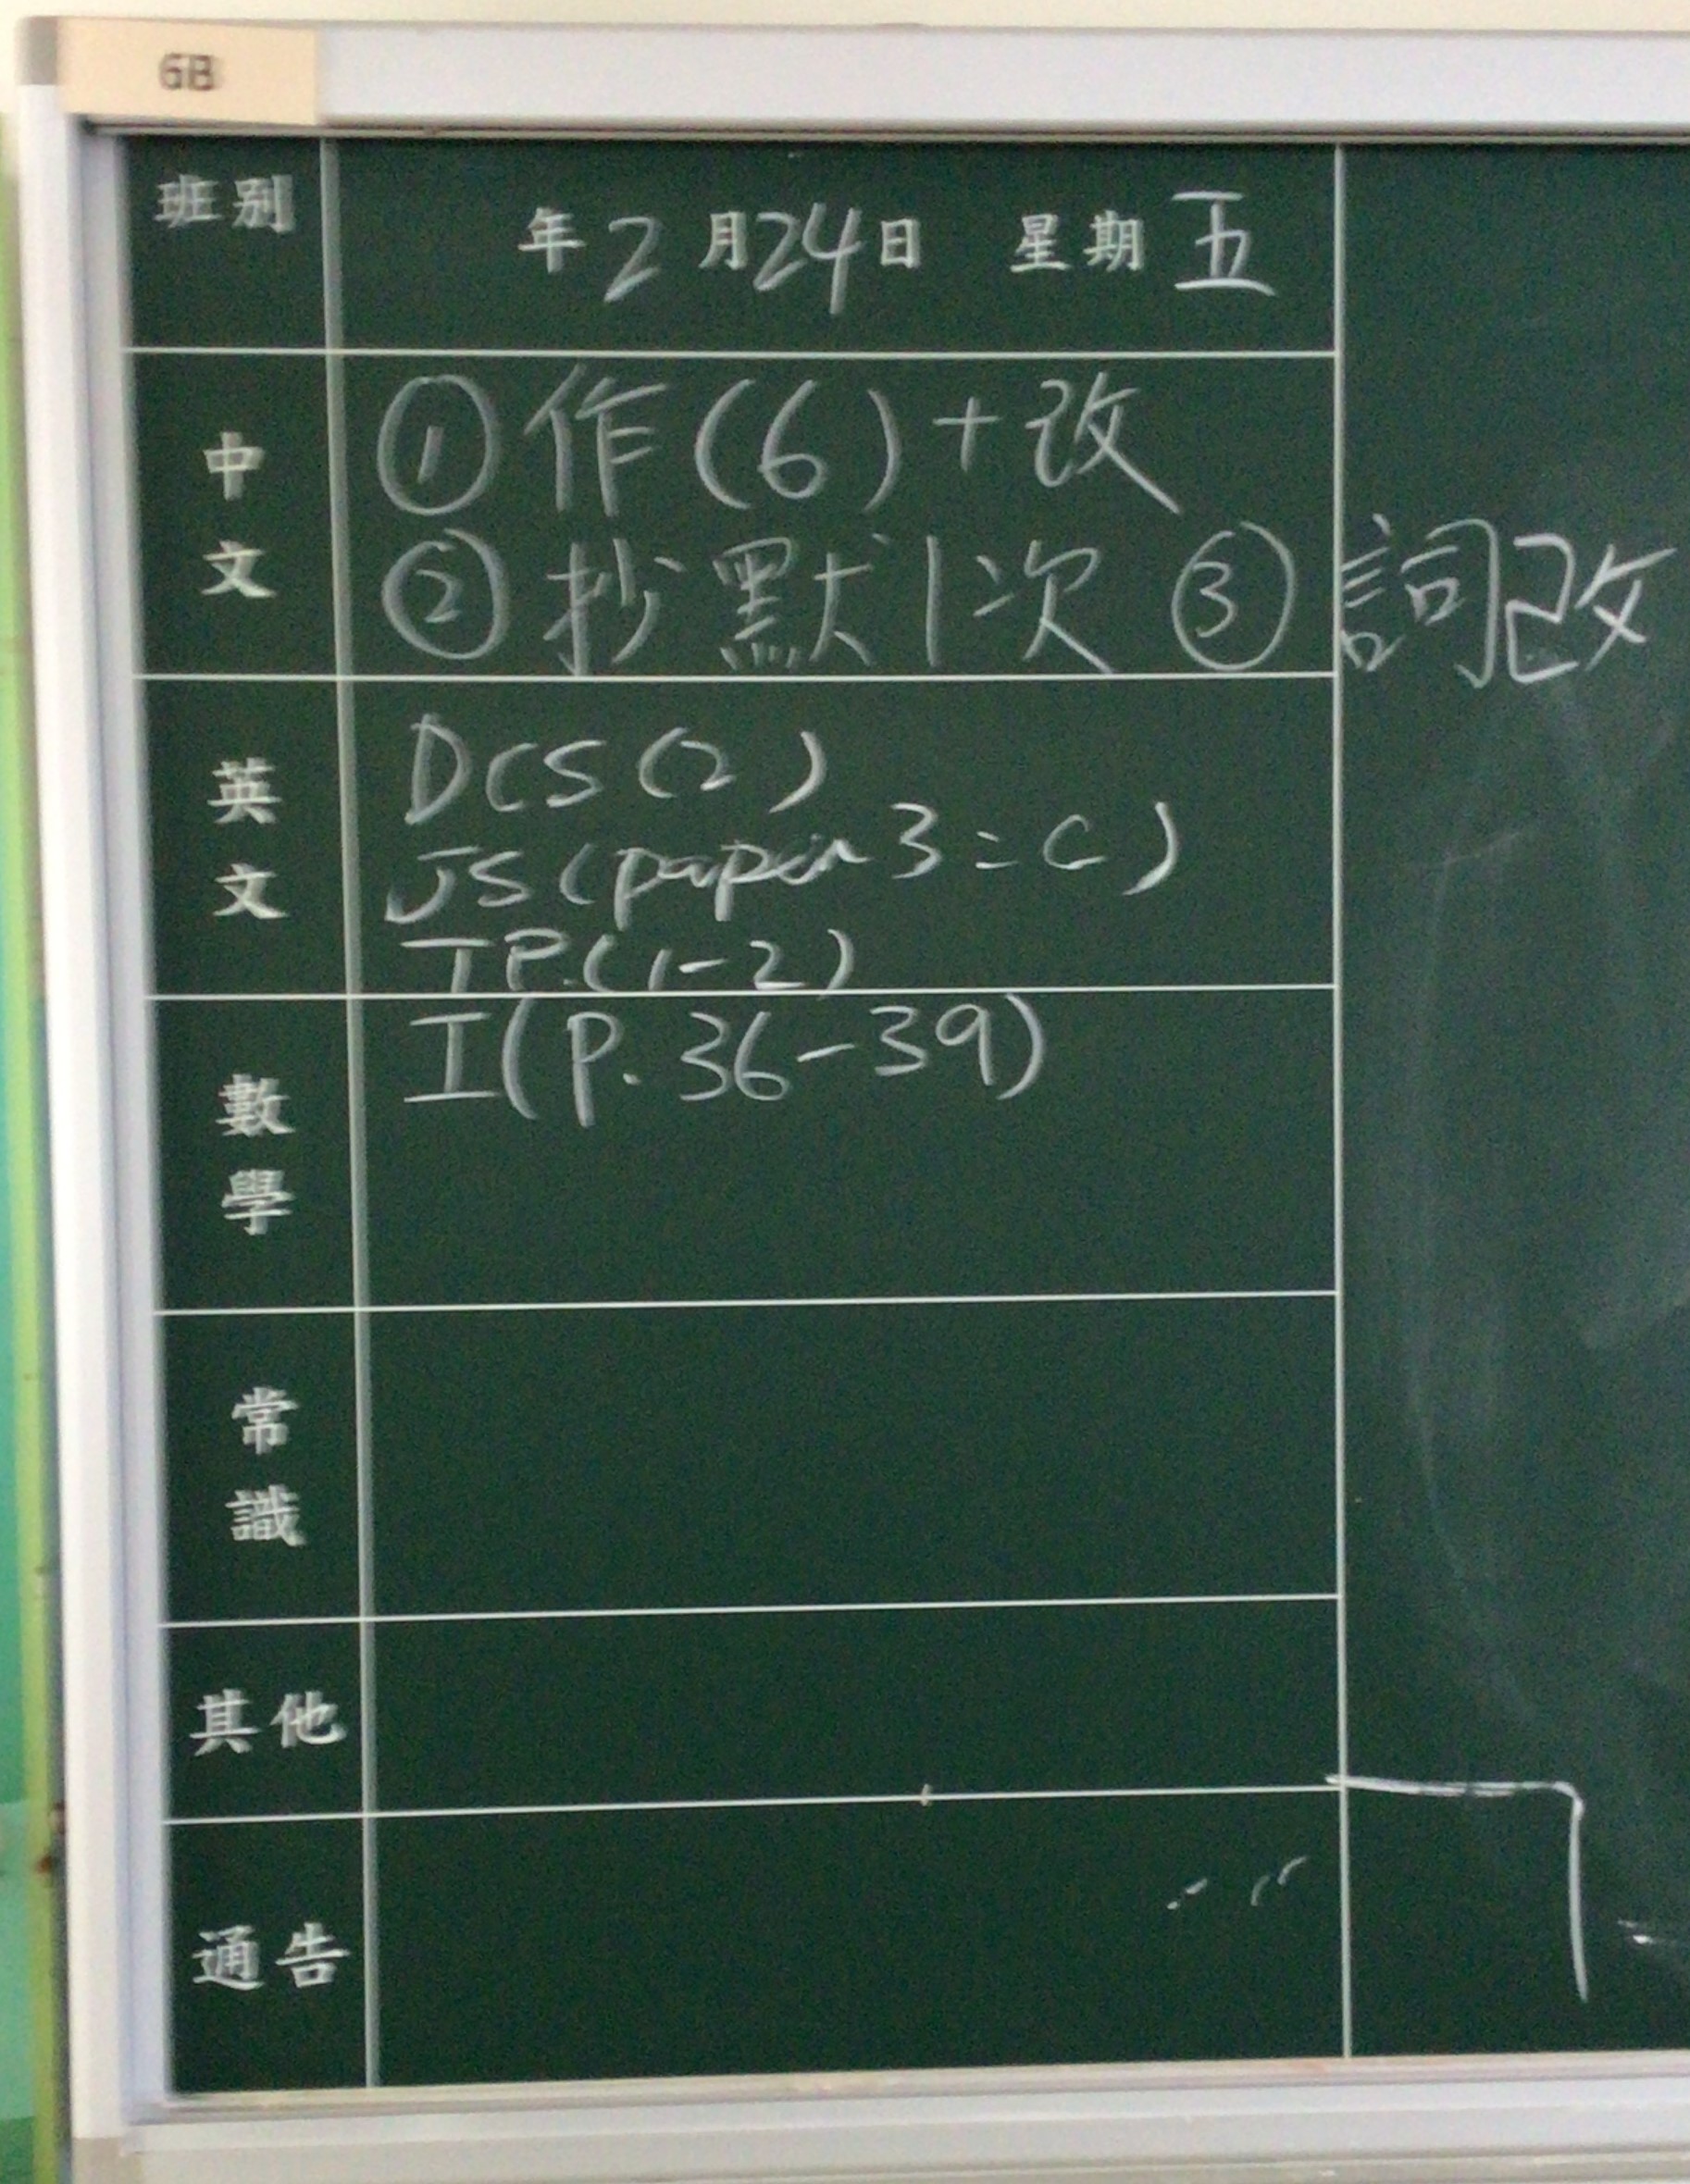 6B
班別
年2月24日 星期五
中文
①作(6)+改
②抄默1次 ③詞改
英文
DCS(2)
JS(paper 3=C)
TP.(1-2)
數學
I(P.36-39)
常識
其他
通告